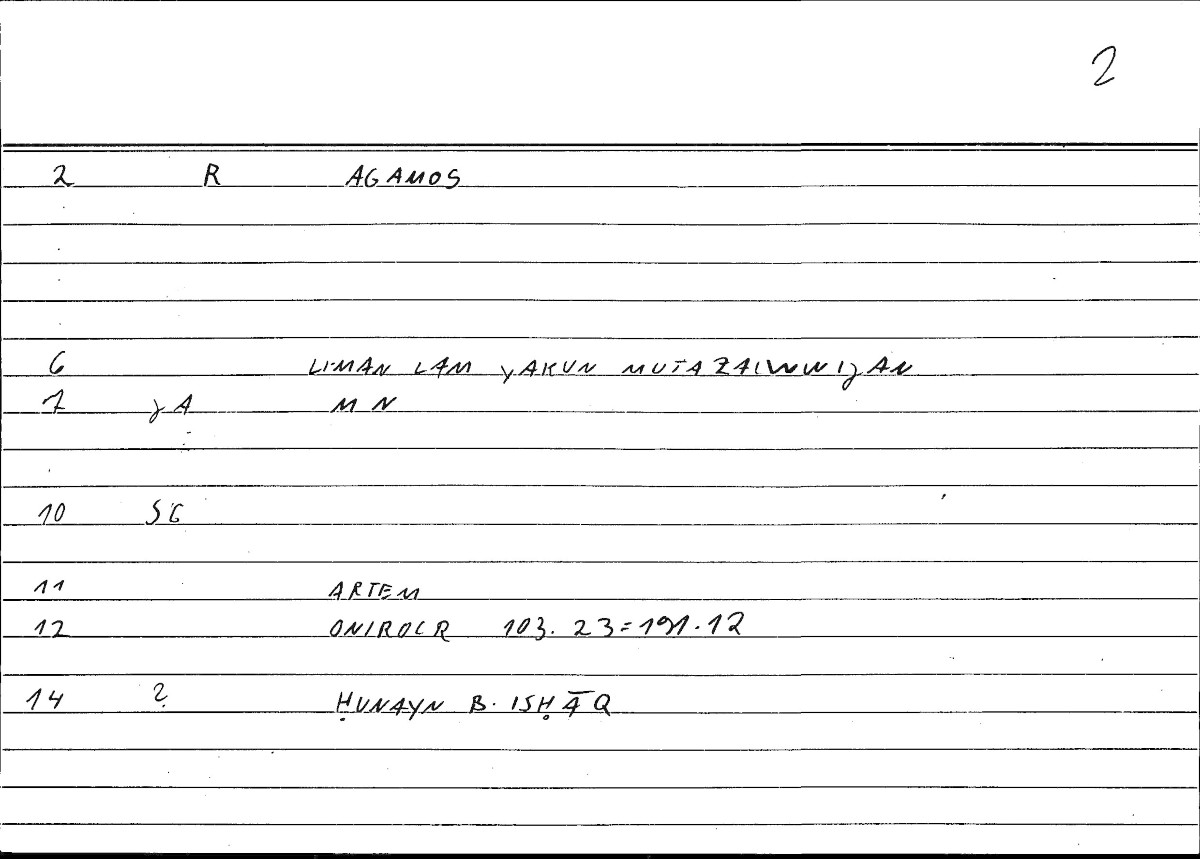 2
2 R AGAMOS
6 LI-MAN LAM YAKUN MUTAZAIWWIǧAN
7 γA MN
10 SG
11 ARTEM
12 ONIROCR 103. 23=191.12
14 ? ḤUNAYN B. ISḤĀQ